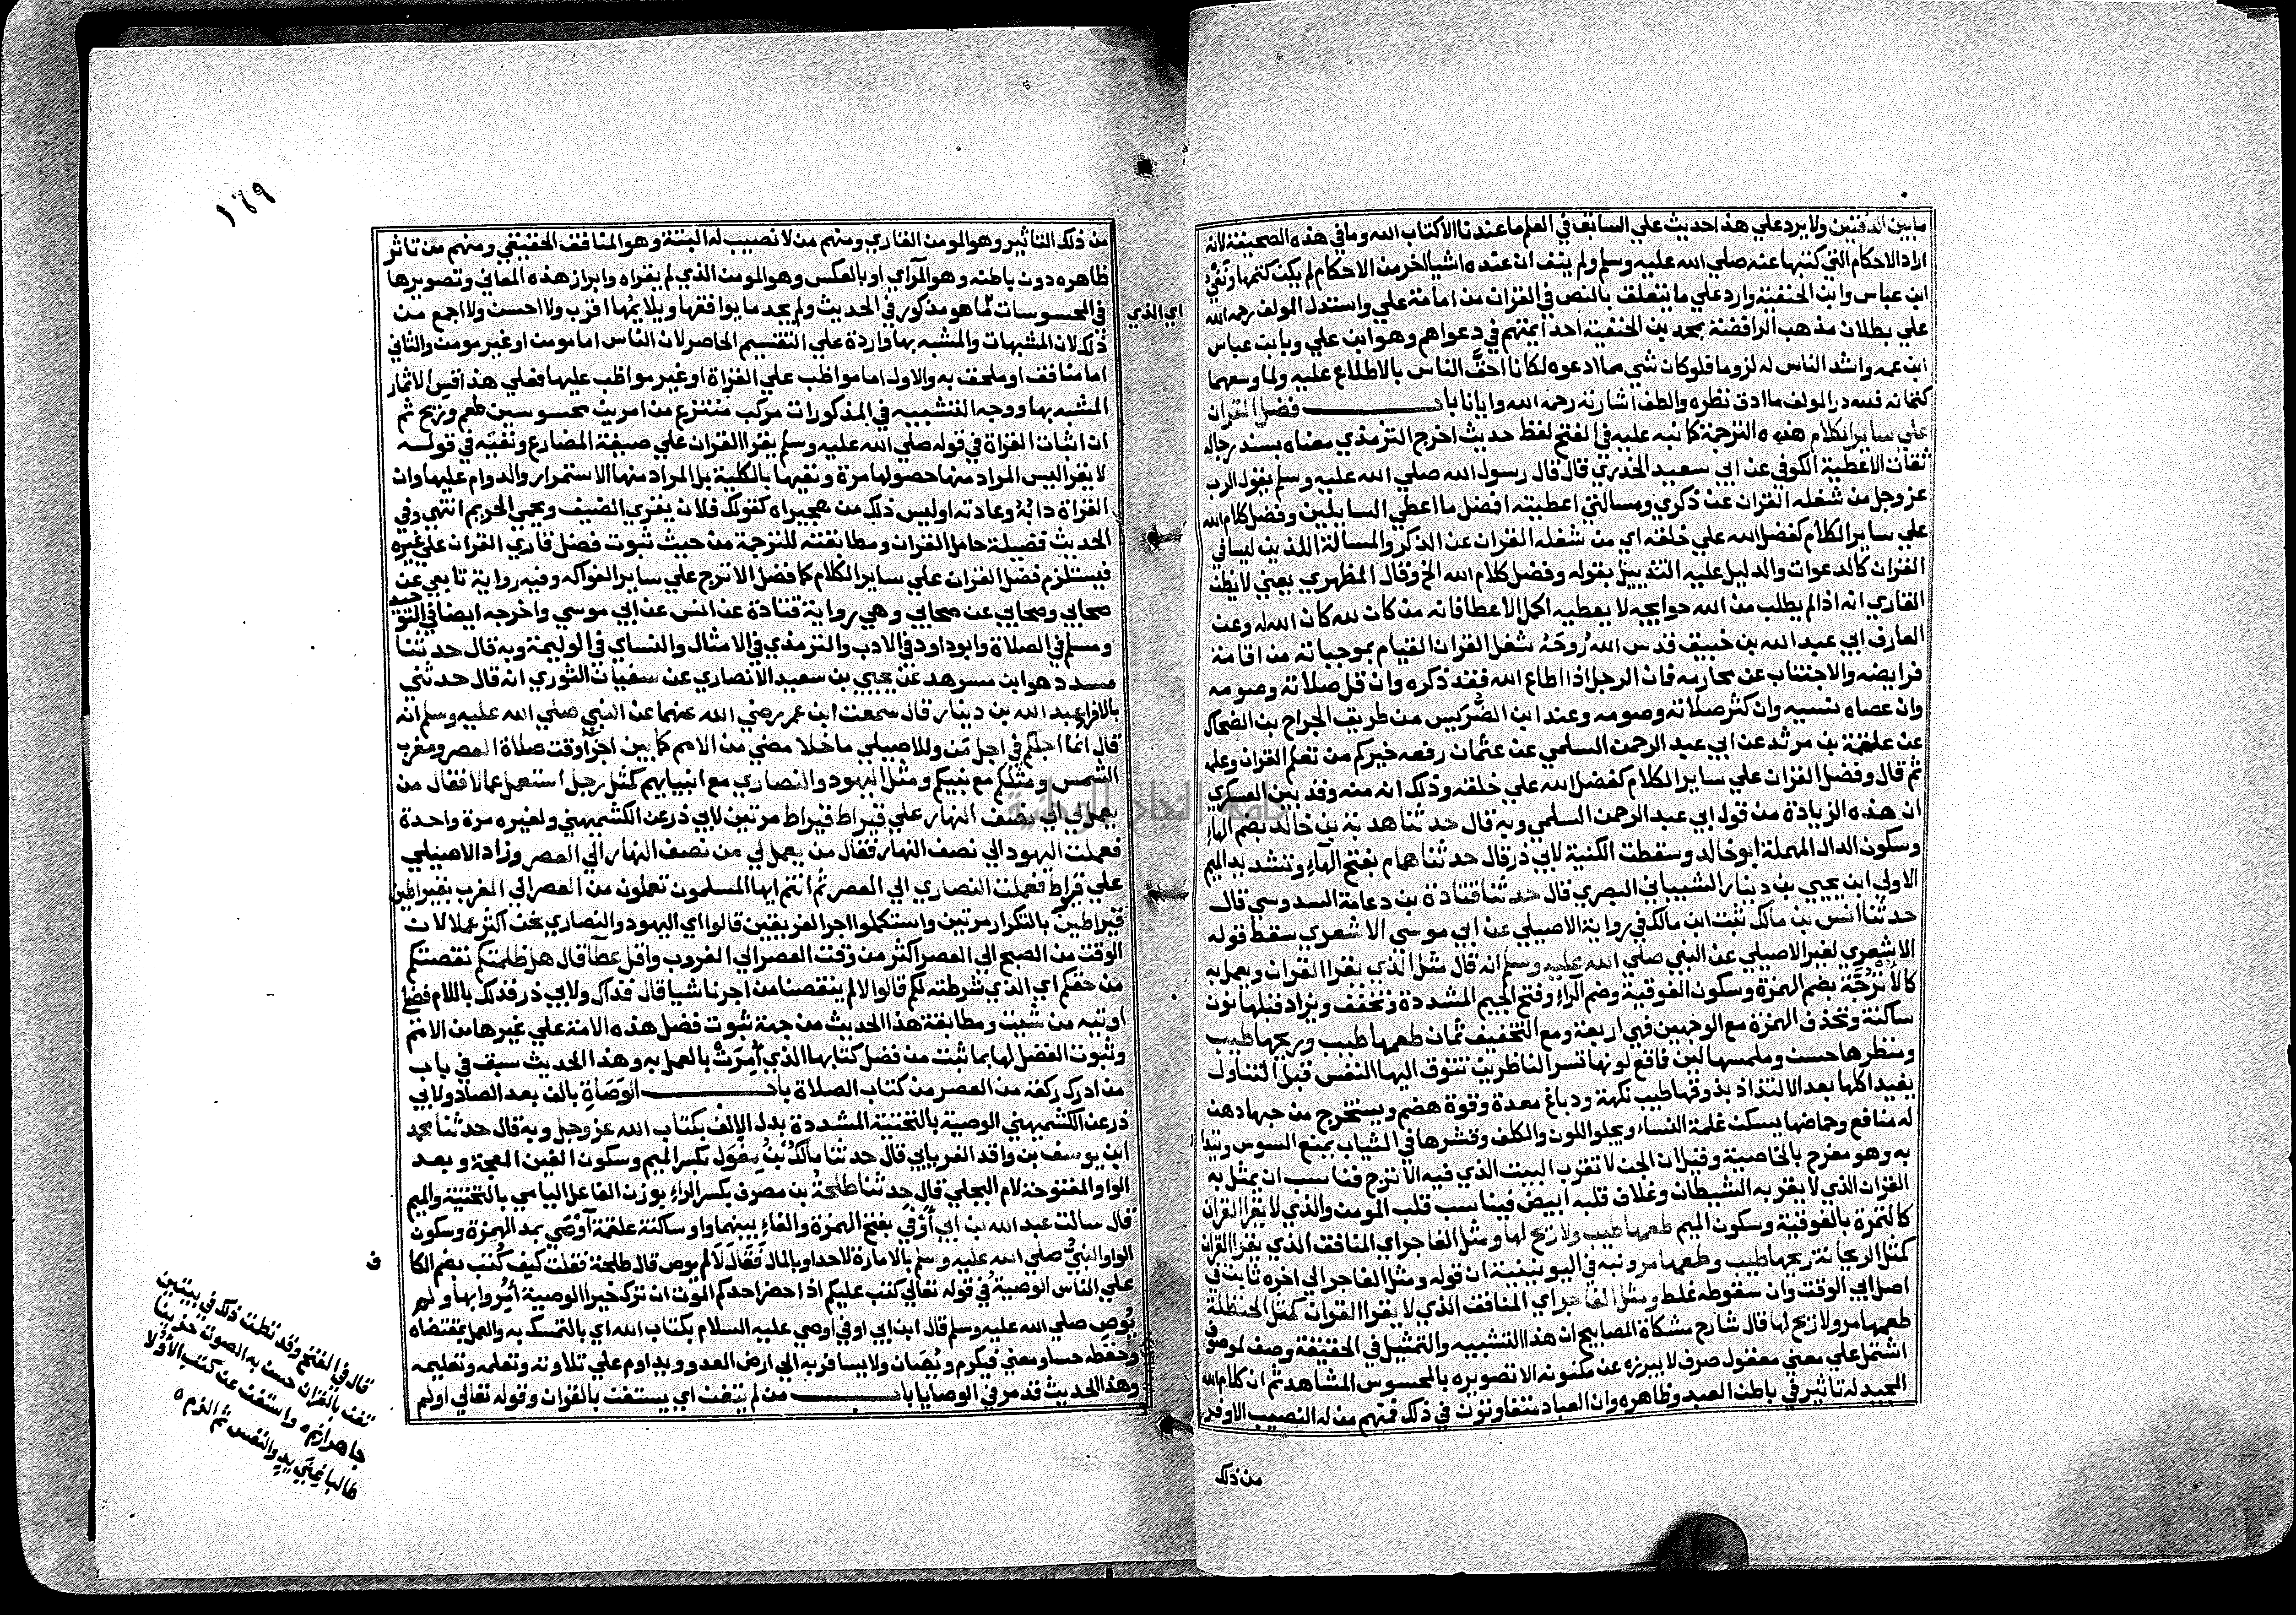 ما بين الدفتين ولا يرد علي هذا حديث علي السابق في العلم ما عندنا الا كتاب الله وما في هذه الصحيفة لانه
اراد الاحكام التي كتبها عنه صلي الله عليه وسلم ولم ينف ان عنده اشيا اخر من الاحكام لم يكن كتبها ونفي
ابن عباس وابن الحنفية وارد علي ما يتعلق بالنص في القران من امامة علي واستدل المولف رحمه الله
علي بطلان مذهب الرافضة بمحمد بن الحنفية احد ايمتهم في دعواهم وهو ابن علي وبابن عباس
ابن عمه واشد الناس له لزوما فلو كان شي مما ادعوه لكانا احق الناس بالاطلاع عليه ولما وسعهما
كتمانه فلله در المولف ما ادق نظره والطف اشارته رحمه الله وايانا باب فضل القران
علي ساير الكلام هذه الترجمة كا نبه عليه في الفتح لفظ حديث اخرج الترمذي معناه بسند رجاله
ثقات الا عطية الكوفي عن ابي سعيد الخدري قال قال رسول الله صلي الله عليه وسلم يقول الرب
عز وجل من شغله القران عن ذكري ومسالتي اعطيته افضل ما اعطي السايلين وفضل كلام الله
علي ساير الكلام كفضل الله علي خلقه اي من شغله القران عن الذكر والمسالة اللذين ليسا في
القران كالدعوات والدليل عليه التذييل بقوله وفضل كلام الله الخ وقال المظهري يعني لا يظن
القاري انه اذا لم يطلب من الله حوايجه لا يعطيه اكمل الاعطا فانه من كان لله كان الله له وعن
العارف ابي عبد الله بن خبيق قدس الله روحه شغل القران القيام بموجباته من اقامة
فرايضه والاجتناب عن محارمه فان الرجل اذا اطاع الله فقد ذكره وان قل صلاته وصومه
وان عصاه نسيه وان كثر صلاته وصومه وعند ابن الضريس من طريق الجراح بن الضحاك
عن علقمة بن مرثد عن ابي عبد الرحمن السلمي عن عثمان رفعه خيركم من تعلم القران وعلمه
ثم قال وفضل القران علي ساير الكلام كفضل الله علي خلقه وذلك انه منه وقد بين العسكري
ان هذه الزيادة من قول ابي عبد الرحمن السلمي وبه قال حدثنا هدبة بن خالد بضم الهاء
وسكون الدال المهملة ابو خالد وسقطت الكنية لابي ذر قال حدثنا همام بفتح الهاء وتشديد الميم
الاولي ابن يحيي بن دينار الشيباني البصري قال حدثنا قتادة بن دعامة السدوسي قال
حدثنا انس بن مالك ثبت ابن مالك في رواية الاصيلي عن ابي موسي الاشعري سقط قوله
الاشعري لغير الاصيلي عن النبي صلي الله عليه وسلم انه قال مثل الذي يقرا القران ويعمل به
كالاترجة بضم الهمزة وسكون الفوقية وضم الراء وفتح الجيم المشددة وتخفف ويزاد قبلها نون
ساكنة وتحذف الهمزة مع الوجهين فهي اربعة ومع التخفيف ثمان طعمها طيب وريحها طيب
ومنظرها حسن وملمسها لين فاقع لونها تسر الناظرين تتوق اليها النفس قبل التناول
يفيد اكلها بعد الالتذاذ بذوقها طيب نكهة ودباغ معدة وقوة هضم ويستخرج من حبها دهن
له منافع وحماضها يسكن غلمة النساء ويجلو اللون والكلف وقشرها في الثياب يمنع السوس ويتدا
به وهو مفرح بالخاصية وقيل ان الجن لا تقرب البيت الذي فيه الاترج فناسب ان يمثل به
القران الذي لا يقر به الشيطان وغلاف قلبه ابيض فيناسب قلب المومن والذي لا يقرا القران
كالتمرة بالفوقية وسكون الميم طعمها طيب ولا ريح لها ومثل الفاجر اي المنافق الذي يقرا القران
كمثل الريحانة ريحها طيب وطعمها مر ونبه في اليونينية ان قوله ومثل الفاجر الي اخره ثابت في
اصل ابي الوقت وان سقوطه غلط ومثل الفاجر اي المنافق الذي لا يقرا القران كمثل الحنظلة
طعمها مر ولا ريح لها قال شارح مشكاة المصابيح ان هذا التشبيه والتمثيل في الحقيقة وصف لموصوف
اشتمل علي معني معقول صرف لا يبرزه عن مكنونه الا تصويره بالمحسوس المشاهد ثم ان كلام الله
المجيد له تاثير في باطن العبد وظاهره وان العباد متفاوتون في ذلك فمنهم من له النصيب الاوفر
من ذلك
١٦٩
من ذلك التاثير وهو المومن القاري ومنهم من لا نصيب له البتة وهو المنافق الحقيقي ومنهم من تاثر
ظاهره دون باطنه وهو المرآي او بالعكس وهو المومن الذي لم يقراه وابراز هذه المعاني وتصويرها
في المحسوسات ما هو مذكور في الحديث ولم يجد ما يوافقها ويلايمها اقرب ولا احسن ولا اجمع من
اي الذي
ذلك لان المشبهات والمشبه بها واردة علي التقسيم الحاصر لان الناس اما مومن او غير مومن والثاني
اما منافق او ملحق به والاول اما مواظب علي القراة او غير مواظب عليها فعلي هذا قس الاثمار
المشبه بها ووجه التشبيه في المذكورات مركب منتزع من امرين محسوسين طعم وريح ثم
ان اثبات القراة في قوله صلي الله عليه وسلم يقرا القران علي صيغة المضارع ونفيه في قوله
لا يقرا ليس المراد منها حصولها مرة ونفيها بالكلية بل المراد منها الاستمرار والدوام عليها وان
القراة دابه وعادته او ليس ذلك من هجيراه كقولك فلان يقري الضيف ويحمي الحريم انتهي وفي
الحديث فضيلة حامل القران ومطابقته للترجمة من حيث ثبوت فضل قاري القران علي غيره
فيستلزم فضل القران علي ساير الكلام كما فضل الاترج علي ساير الفواكه وفيه رواية تابعي عن
صحابي وصحابي عن صحابي وهي رواية قتادة عن انس عن ابي موسي واخرجه ايضا في التوحيد
ومسلم في الصلاة وابو داود في الادب والترمذي في الامثال والنساي في الوليمة وبه قال حدثنا
مسدد هو ابن مسرهد عن يحيي بن سعيد الانصاري عن سفيان الثوري انه قال حدثني
بالافراد عبد الله بن دينار قال سمعت ابن عمر رضي الله عنهما عن النبي صلي الله عليه وسلم انه
قال انما اجلكم في اجل من وللاصيلي ما خلا مضي من الامم كما بين اجزاء وقت صلاة العصر ومغرب
الشمس ومثلكم مع نبيكم ومثل اليهود والنصاري مع انبيايهم كمثل رجل استعمل عمالا فقال من
يعمل لي الي نصف النهار علي قيراط قيراط مرتين لابي ذر عن الكشميهني ولغيره مرة واحدة
فعملت اليهود الي نصف النهار فقال من يعمل لي من نصف النهار الي العصر وزاد الاصيلي
علي قيراط فعملت النصاري الي العصر ثم انتم ايها المسلمون تعملون من العصر الي المغرب بقيراطين
قيراطين بالتكرار مرتين واستكملوا اجر الفريقين قالوا اي اليهود والنصاري نحن اكثر عملا لان
الوقت من الصبح الي العصر اكثر من وقت العصر الي الغروب واقل عطآ قال هل ظلمتكم نقصتكم
من حقكم اي الذي شرطته لكم قالوا لا لم ينقصنا من اجرنا شيا قال فذاك ولابي ذر فذلك باللام فضلي
اوتيه من شيت ومطابقة هذا الحديث من جهة ثبوت فضل هذه الامة علي غيرها من الامم
وثبوت الفضل لها بما ثبت من فضل كتابها الذي امرت بالعمل به وهذا الحديث سبق في باب
من ادرك ركعة من العصر من كتاب الصلاة باب الوصاة بالف بعد الصاد ولابي
ذر عن الكشميهني الوصية بالتحتية المشددة بدل الالف بكتاب الله عز وجل وبه قال حدثنا محمد
ابن يوسف بن واقد الفريابي قال حدثنا مالك بن مغول بكسر الميم وسكون الغين المعجمة وبعد
الواو المفتوحة لام البجلي قال حدثنا طلحة بن مصرف بكسر الراء بوزن الفاعل اليامي بالتحتية والميم
قال سالت عبد الله بن ابي اوفي بفتح الهمزة والفاء بينهما واو ساكنة علقمة آوصي بمد الهمزة وسكون
الواو النبي صلي الله عليه وسلم بالامارة لاحد او بالمال فقال لا لم يوص قال طلحة فقلت كيف كتب بضم الكا
ف
علي الناس الوصية في قوله تعالي كتب عليكم اذا حضر احدكم الموت ان ترك خيرا الوصية امروا بها ولم
يوص صلي الله عليه وسلم قال ابن ابي اوفي اوصي عليه السلام بكتاب الله اي بالتمسك به والعمل بمقتضاه
وحفظه حسا ومعني فيكرم ويصان ولا يسافر به الي ارض العدو ويداوم علي تلاوته وتعلمه وتعليمه
وهذا الحديث قد مر في الوصايا باب من لم يتغن اي يستغن بالقران وقوله تعالي اولم
قال في الفتح وقد نظمت ذلك في بيتين
تغن بالقران حسن به الصوت حزينا
جاهرا رنم واستغن عن كتب الاولا
طالبا غني يد والنفس ثم الزم
جامعة النجاح الوطنية